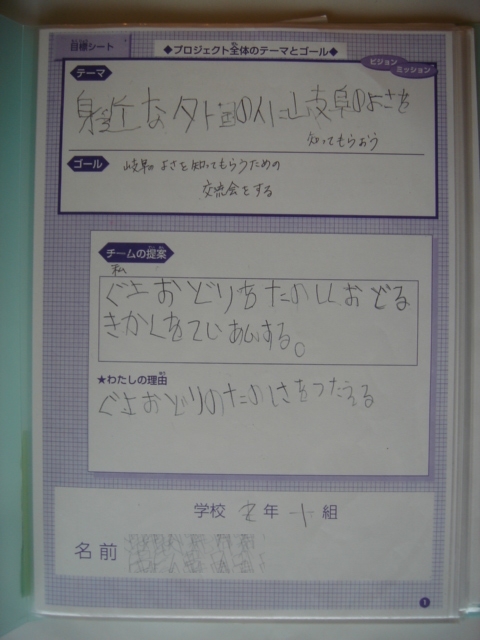 目標シート
◆プロジェクト全体のテーマとゴール◆
ビジョン
ミッション
テーマ
身近な外国の人に岐阜のよさを
知ってもらおう
ゴール
岐阜のよさを知ってもらうための
交流会をする
チームの提案
私
ぐじょおどりをたのしくおどる
きかくをていあんする。
★わたしの理由
ぐじょおどりのたのしさをつたえる
学校 年 組
名前
1